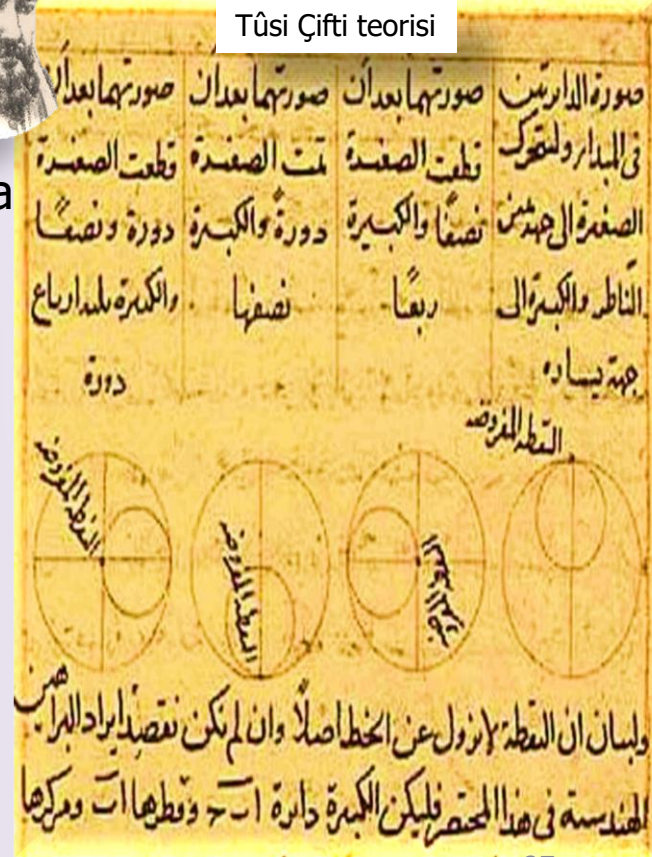 Tûsi Çifti teorisi
a
صورة الدائرتين
فى المبدا ولتتحرك
الصغيرة الى جهة يمين
الناظر والكبيرة الى
جهة يساره
صورتهما بعد ان
قطعت الصغيرة
نصفًا والكبيرة
ربعًا
صورتهما بعد ان
تمت الصغيرة
دورةً والكبيرة
نصفها
صورتهما بعد ان
قطعت الصغيرة
دورة ونصفًا
والكبيرة ارباع
دورة
النقطة المفروضة
النقطة المفروضة
النقطة المفروضة
ولبيان ان النقطة لا تزول عن الخط اصلًا وان لم نكن نقصد ايراد البراهين
الهندسية فى هذا المختصر فليكن الكبيرة دائرة ا ب ج وقطرها ا ب ومركزها